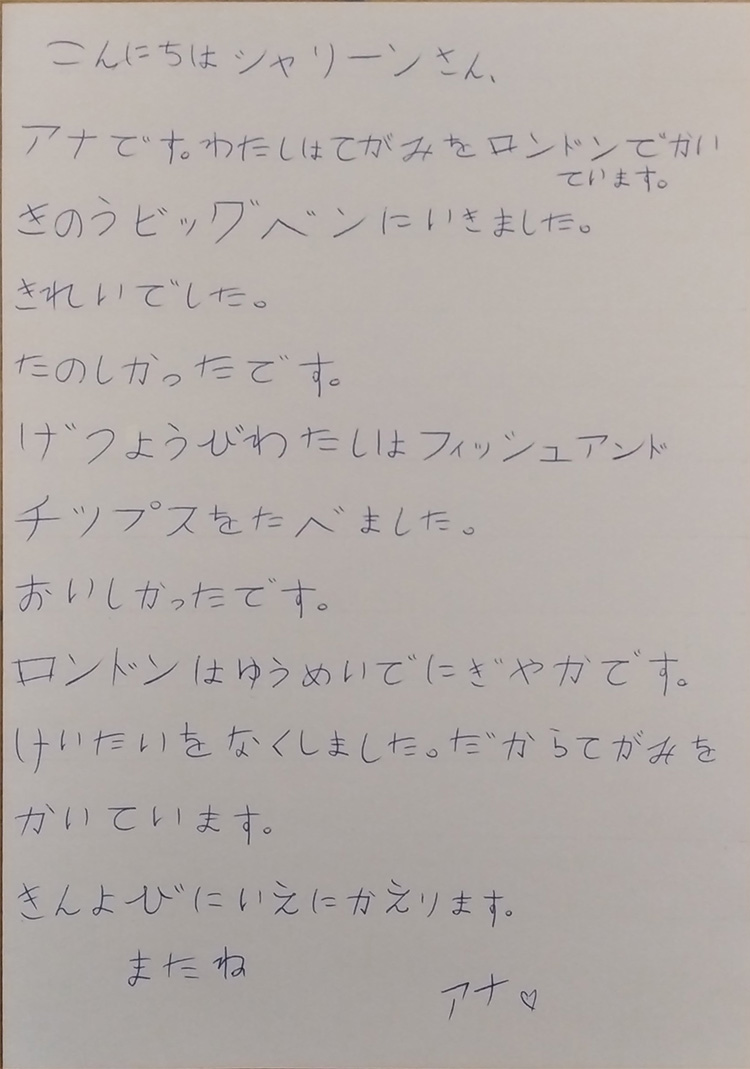 こんにちはシャリーンさん、
アナです。わたしはてがみをロンドンでかい
ています。
きのうビッグベンにいきました。
きれいでした。
たのしかったです。
げつようびわたしはフィッシュアンド
チップスをたべました。
おいしかったです。
ロンドンはゆうめいでにぎやかです。
けいたいをなくしました。だからてがみを
かいています。
きんよびにいえにかえります。
またね
アナ♡